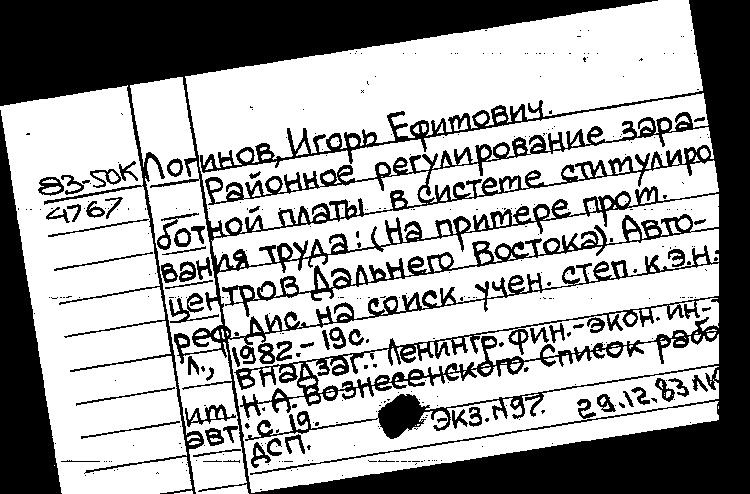 83-50К
4767
Логинов, Игорь Ефимович.
Районное регулирование зара-
ботной платы в системе стимулиро
вания труда: (На примере пром.
центров Дальнего Востока). Авто-
реф. дис. на соиск. учен. степ. к.э.н.:
Л., 1982.-19с.
В надзаг.: Ленингр. фин.-экон. ин-т
им. Н.А. Вознесенского. Список рабо
авт.: с. 19.
ДСП.
Экз. N97. 29.12.83 ЛК